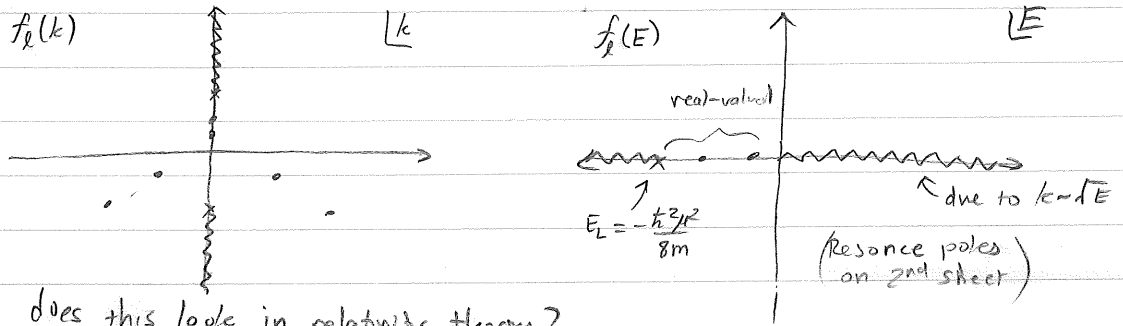 f_ℓ(k)
k
f_ℓ(E)
E
real-valued
due to k~√E
E_L = -ħ²μ²/8m
(Resonce poles
on 2nd sheet)
does this look in relativistic theory?